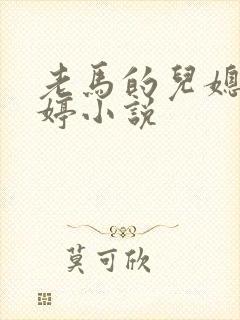 老馬的兒媳
婷小說
莫可欣